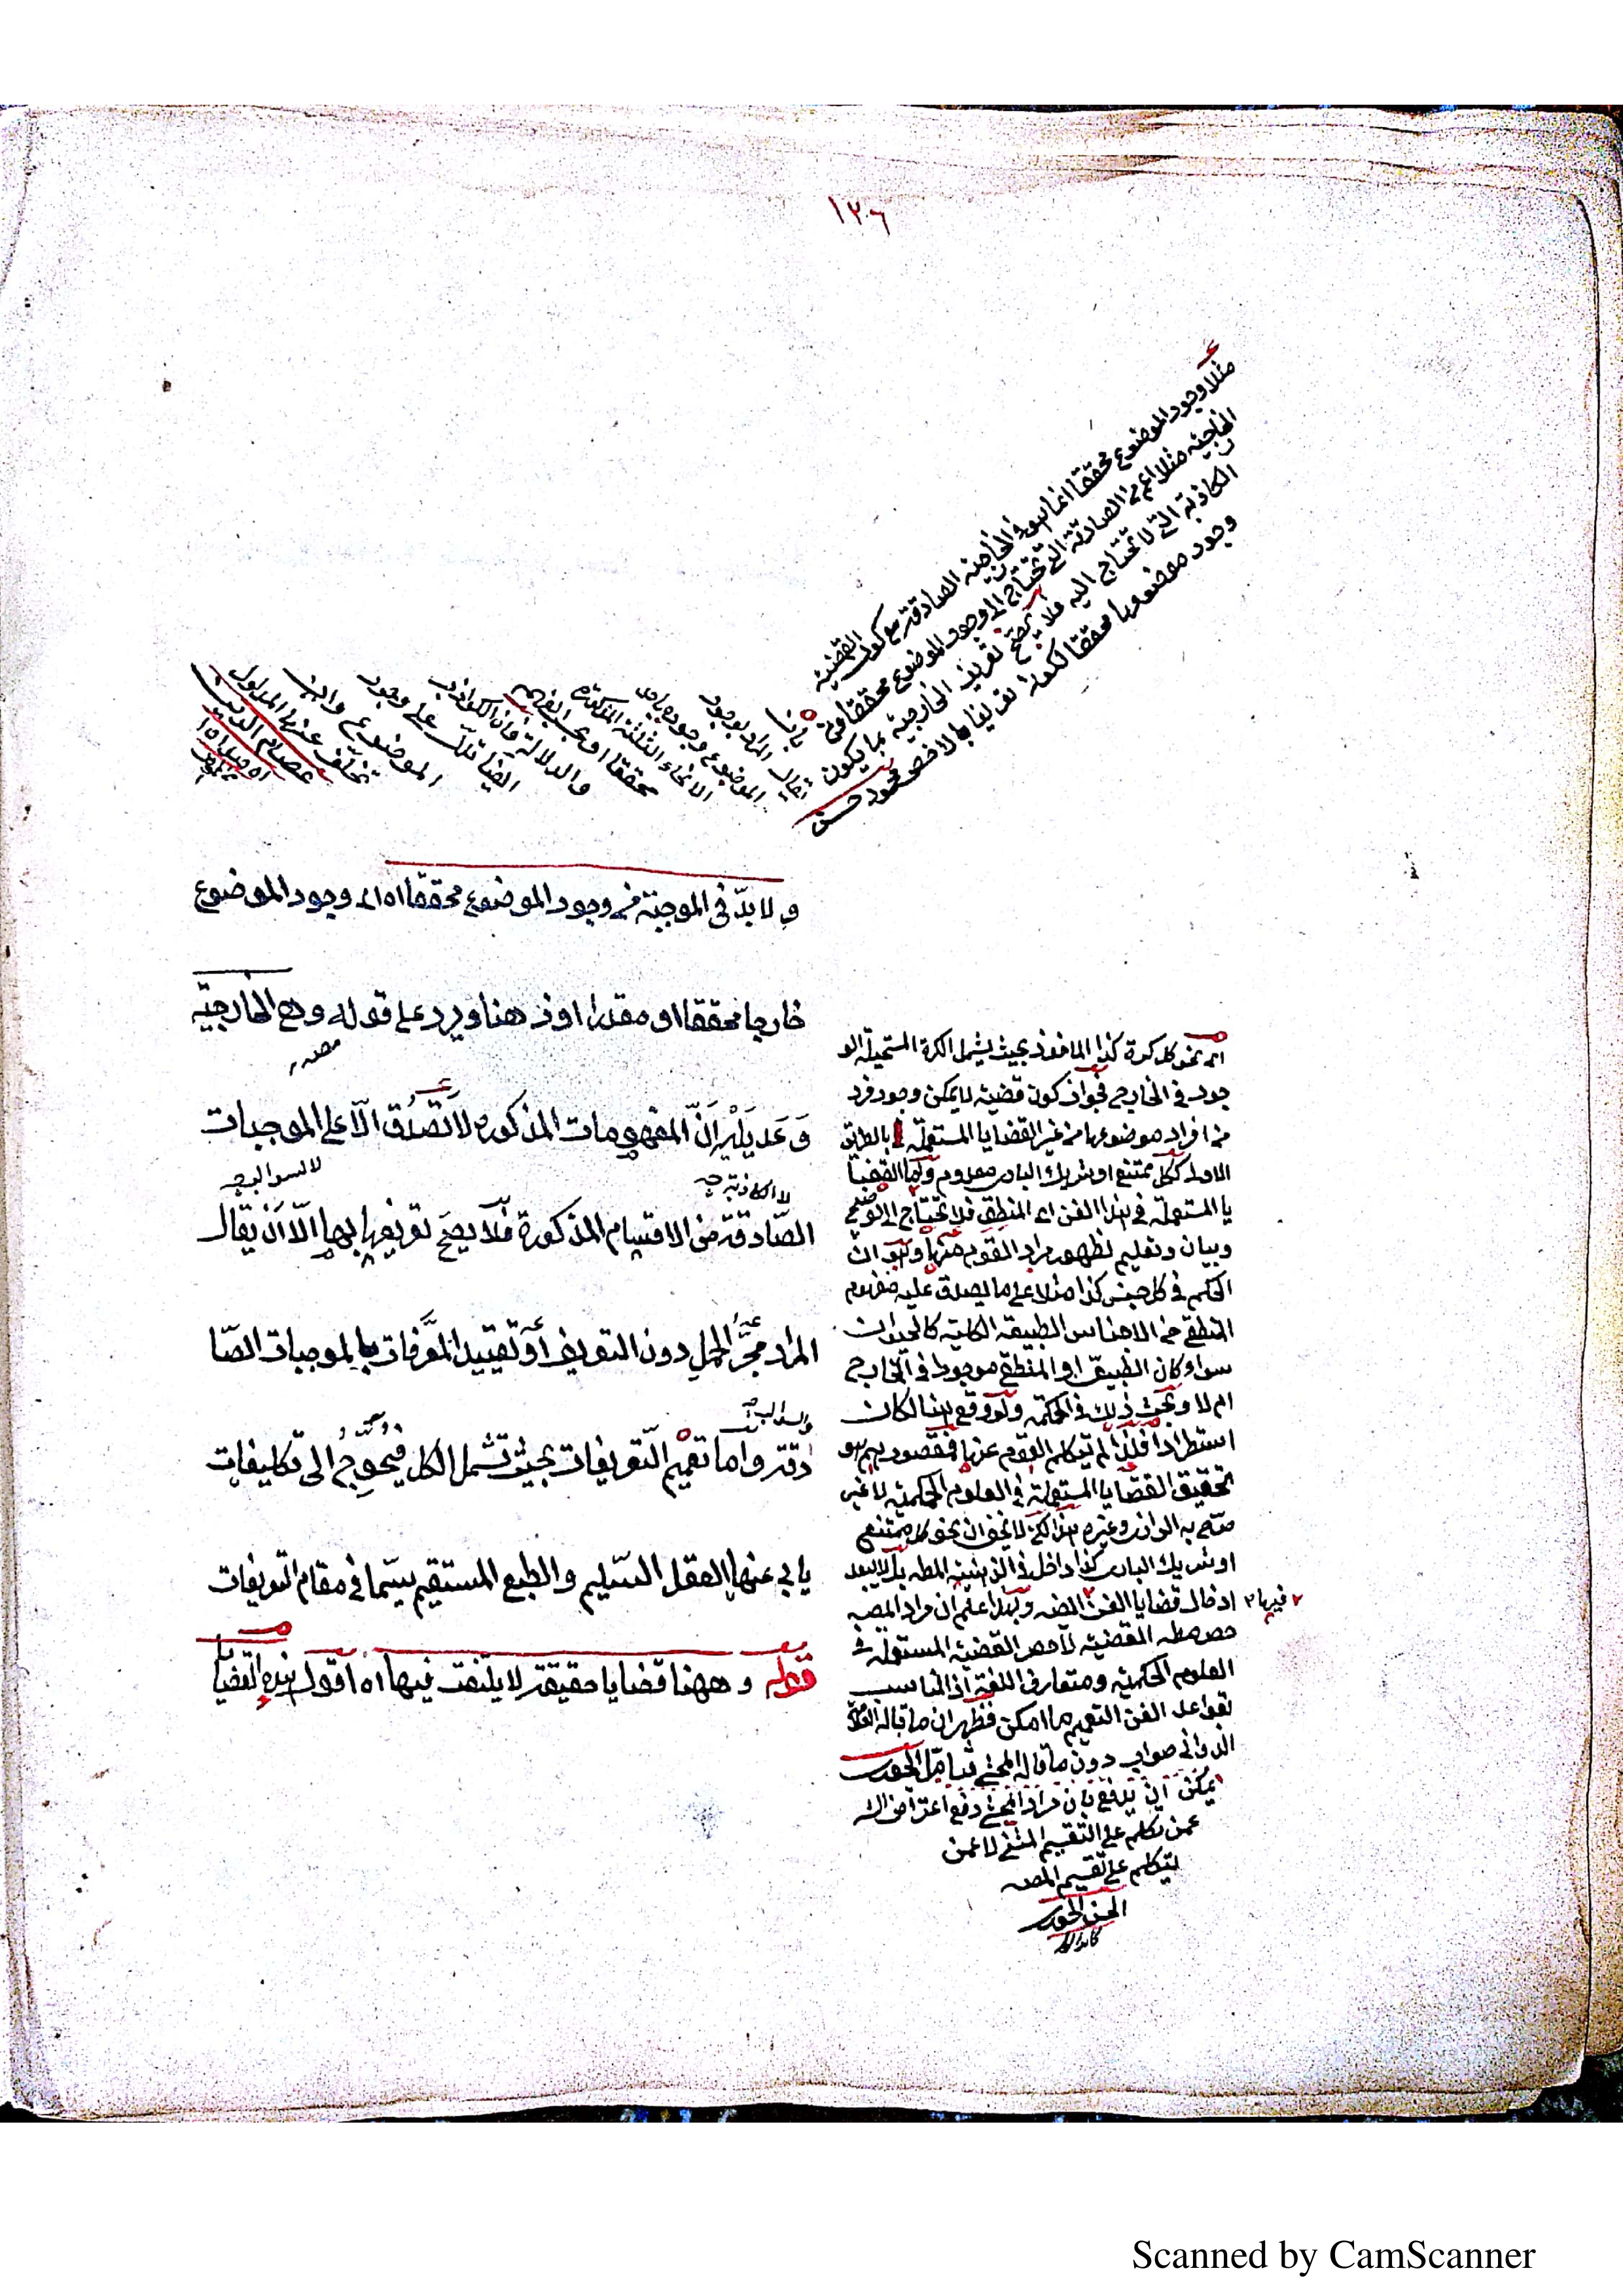 ١٣٠٦
مثلا وجود الموضوع محققا انما هو في الخارجية الصادقة مع كون القضية
الخارجية مثلا اعم من الصادقة التي تحتاج الى وجود الموضوع محققا ومن
الكاذبة التي لا تحتاج اليه فلا يصح تعريف الخارجية بما يكون
وجود موضوعها محققا لكونه تعريفا بالاخص محمود حسن
يقال المراد بوجود
الموضوع وجوده باحد
الانحاء الثلثة المذكورة
محققا او بحسب
والدلالة فان الكواذب
ايضا تدل على وجود
الموضوع وان
تخلف عنها المدلول
عصام الدين
ولا بد في الموجبة من وجود الموضوع محققا اه اى وجود الموضوع
خارجا محققا او مقدرا او ذهنا ويرد على قوله وهى الخارجية
وعديليه ان المفهومات المذكوره لا تصدق الا على الموجبات
لا السوالب
لا الكاذبة
الصادقة من الاقسام المذكورة فلا يصح تعريفها بها الا ان يقال
المراد مجرد الحمل دون التعريف او تقييد المعرفات بالموجبات الصا
دقة واما تعميم التعريفات بحيث تشمل الكل فيحوج الى تكليفات
يابى عنها العقل السليم والطبع المستقيم سيما في مقام التعريفات
قوله وههنا قضايا حقيقة لا يلتفت فيها اه اقول هذه القضيا
اى نحو كل كرة كذا الماخوذ بحيث يشمل الكرة المستحيلة الو
جود في الخارج فجواز كون قضية لا يمكن وجود فرد
من افراد موضوعها من غير القضايا المستعملة بالطريق
الاولى ككل ممتنع او شريك البارى معدوم واما القضيا
يا المستعملة في هذا الفن اى المنطق فلا تحتاج الى توضيح
وبيان وتعليم لظهور مراد القوم منها وهو ان
الحكم في كل جنس كذا مثلا على ما يصدق عليه مفهوم
المنطقي من الاجناس الطبيعة الكلية كالحيوان
سواء كان الطبيعى او المنطقي موجودا في الخارج
ام لا وبحث ذلك في الحكمة ولو وقع هنا لكان
استطرادا فلذا لم يتكلم القوم عنها فمقصودهم هو
تحقيق القضايا المستعملة في العلوم الحكمية لا غير
صرح به الرازى وغيره هذا لكن لا يخفى ان نحو كل ممتنع
او شريك البارى كذا داخل في الذهنية المطه بل لا يبعد
ادخال قضايا الفن ايضه فيها وبهذا علم ان مراد المصه
حصر مطلق القضية لا حصر القضية المستعملة في
العلوم الحكمية ومتعارف اللغة اذ المناسب
لقواعد الفن التعميم ما امكن فظهر ان ما قاله العلامة
الدوانى صواب دون ما قاله المحشى فتامل الخورى
يمكن ان يدفع بان مراد المحشى دفع اعتراض الشه
عمن تكلم على التقسيم المثنى لا عمن
يتكلم على تقسيم المصه
الحسن الخورى
Scanned by CamScanner